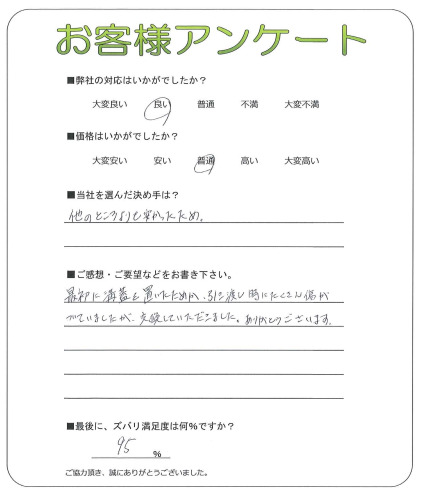 お客様アンケート
■弊社の対応はいかがでしたか？
大変良い 良い 普通 不満 大変不満
■価格はいかがでしたか？
大変安い 安い 普通 高い 大変高い
■当社を選んだ決め手は？
他のところよりも安かったため。
■ご感想・ご要望などをお書き下さい。
最初に溝蓋を置いたためか、引き渡し時にたくさん傷が
ついていましたが、交換していただきました。ありがとうございます。
■最後に、ズバリ満足度は何％ですか？
95 ％
ご協力頂き、誠にありがとうございました。